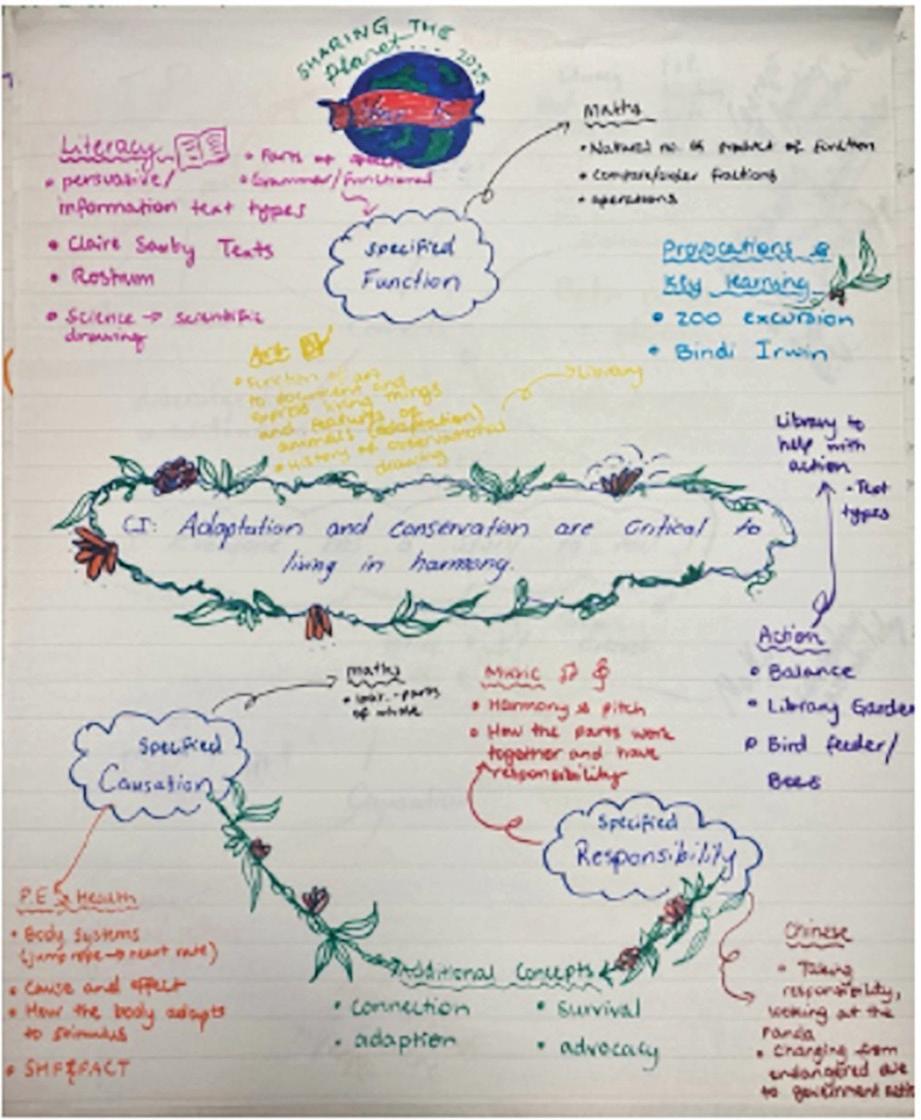 SHARING THE
Planet... 2025
Year 5
Literacy
• persuasive/
information text types
• Claire Saxby Texts
• Rostrum
• Science → scientific
drawing
• Parts of speech
• Grammar/functional
Specified
Function
Maths
• Natural no. & product of function
• Compare/order fractions
• operations
Provocations &
Key learning
• ZOO excursion
• Bindi Irwin
Art
• Function of art
to document and
living things
and features of
animals (adaptation)
• History of observational
drawing
Library
Library to
help with
action
• Text
types
CI: Adaptation and conservation are critical to
living in harmony.
Action
• Balance
• Library Garden
• Bird feeder/
Bees
maths
parts
of whole
Music
• Harmony & pitch
• How the parts work
together and have
responsibility
Specified
Causation
Specified
Responsibility
P.E & Health
• Body Systems
(jump rope → heart rate)
• Cause and effect
• How the body adapts
to stimulus
• SMF&FACT
Additional Concepts
• connection
• adaption
• survival
• advocacy
Chinese
• Taking
responsibility,
looking at the
Panda
• Changing from
endangered due
to government